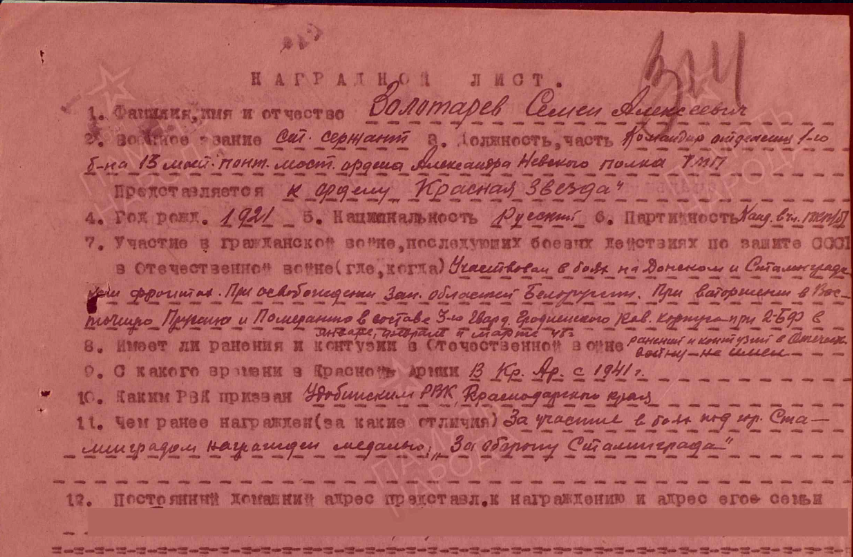 НАГРАДНОЙ ЛИСТ.
1. Фамилия, имя и отчество Золотарев Семен Алексеевич
2. Военное звание ст. сержант 3. Должность, часть Командир отделения 1-го
б-на 13 мот. понт. мост. ордена Александра Невского полка
Представляется к ордену "Красная Звезда"
4. Год рожд. 1921 5. Национальность Русский 6. Партийность Канд. в чл. ВКП/б/
7. Участие в гражданской войне, последующих боевых действиях по защите СССР
в Отечественной войне (где, когда) Участвовал в боях на Донском и Сталинград-
ском фронтах. При освобождении Зап. областей Белоруссии. При вторжении в Вос-
точную Пруссию и Померанию в составе 3-го Гвард. Гродненского Кав. Корпуса при 2-БФ в
январе, феврале и марте 45г.
8. Имеет ли ранения и контузии в Отечественной войне ранений и контузий в Отечеств.
войну - не имеет
9. С какого времени в Красной Армии В Кр. Ар. с 1941 г.
10. Каким РВК призван Удобинским РВК, Краснодарского края
11. Чем ранее награжден (за какие отличия) За участие в боях под гор. Ста-
линградом награжден медалью "За оборону Сталинграда"
12. Постоянный домашний адрес представл. к награждению и адрес его семьи
ПАМЯТЬ НАРОДА